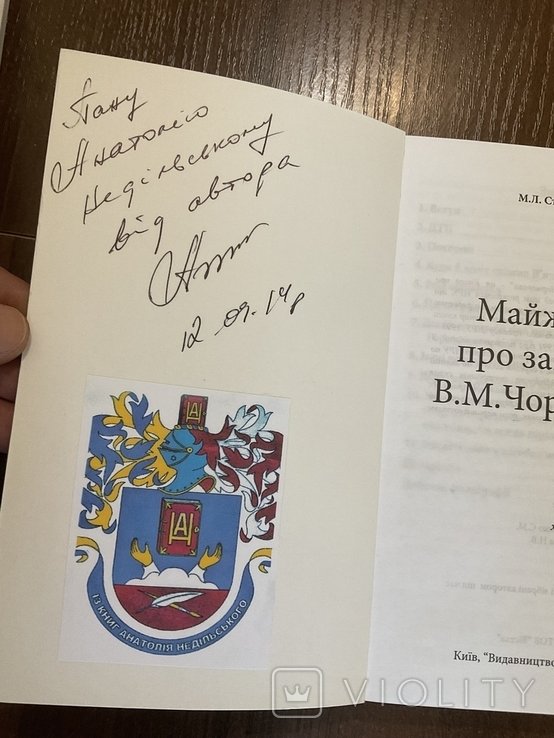 Пану
Анатолію
Недільському
від автора
12.09.14р
АН
АН
ІЗ КНИГ АНАТОЛІЯ НЕДІЛЬСЬКОГО
М.Л.
Майж
про за
В.М.Чор
Київ, "Видавництво
VIOLITY